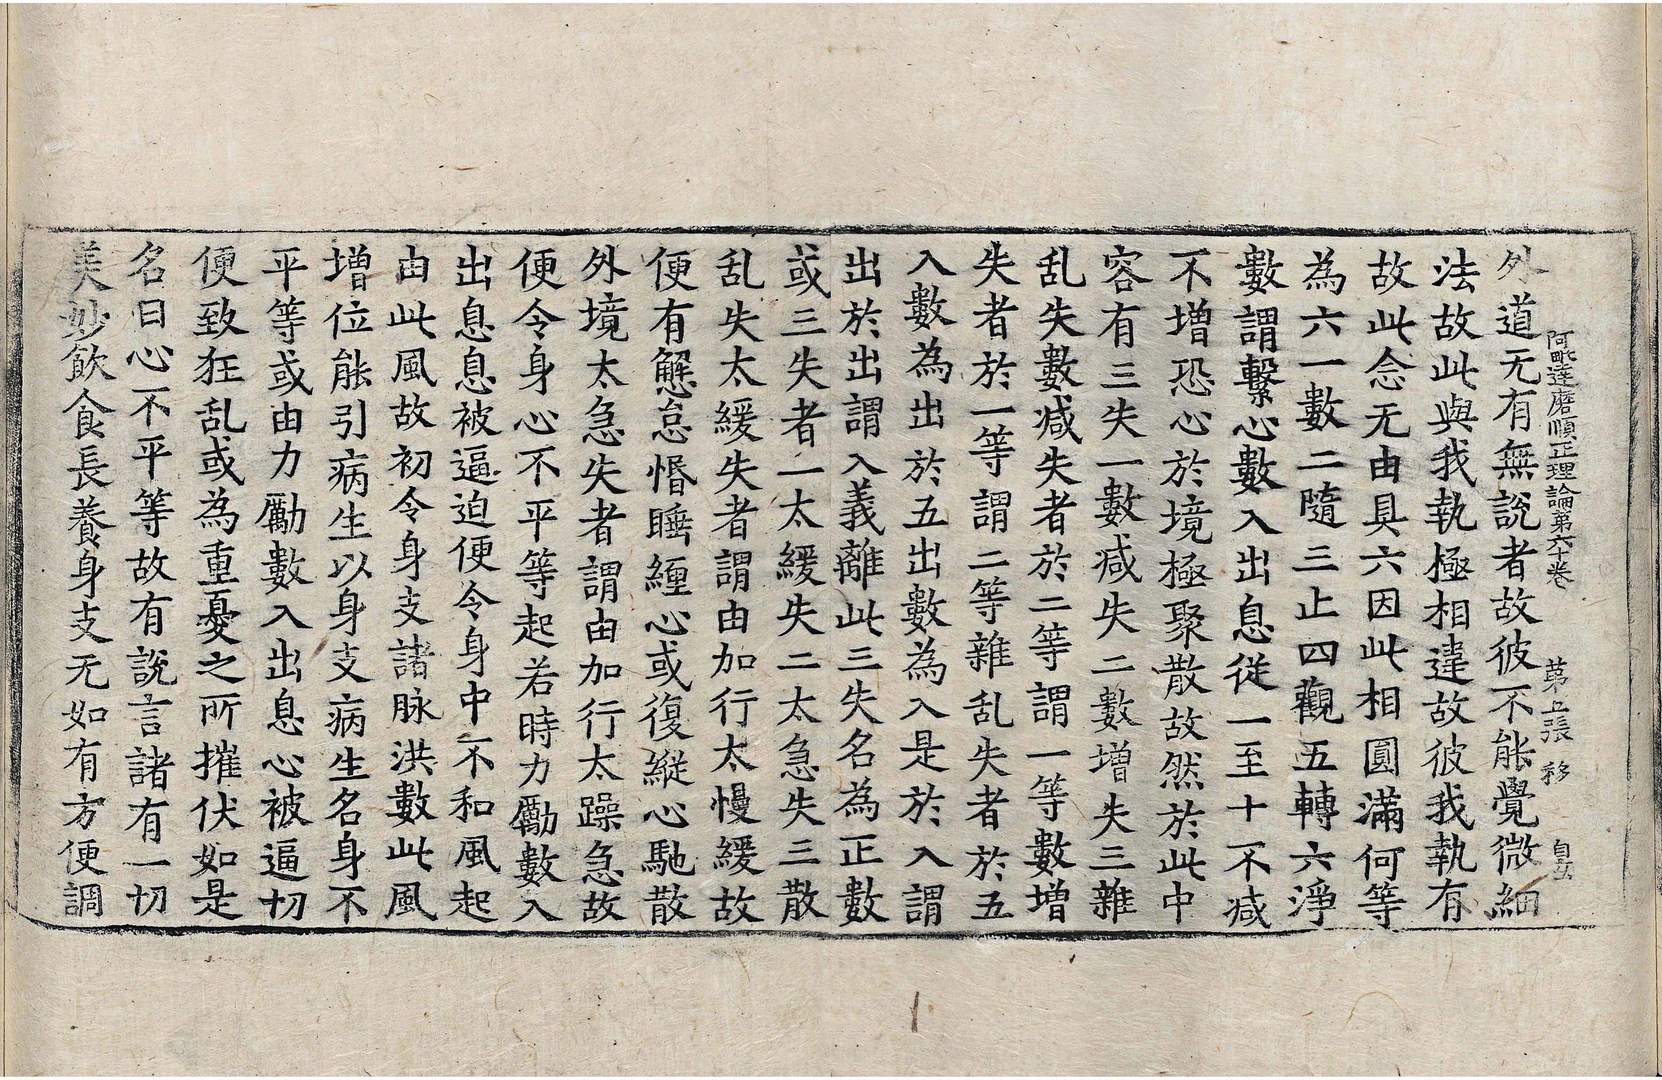 阿毗達磨順正理論第六十卷 第五張 移
外道无有無說者故彼不能覺微細
法故此與我執極相違故彼我執有
故此念无由具六因此相圓滿何等
為六一數二隨三止四觀五轉六淨
數謂繫心數入出息從一至十不減
不增恐心於境極聚散故然於此中
容有三失一數減失二數增失三雜
乱失數减失者於二等謂一等數增
失者於一等謂二等雜乱失者於五
入數為出於五出數為入是於入謂
出於出謂入義離此三失名為正數
或三失者一太緩失二太急失三散
乱失太緩失者謂由加行太慢緩故
便有懈怠惛睡纏心或復縱心馳散
外境太急失者謂由加行太躁急故
便令身心不平等起若時力勵數入
出息息被逼迫便令身中不和風起
由此風故初令身支諸脉洪數此風
增位能引病生以身支病生名身不
平等或由力勵數入出息心被逼切
便致狂乱或為重憂之所摧伏如是
名曰心不平等故有說言諸有一切
美妙飲食長養身支无如有方便調